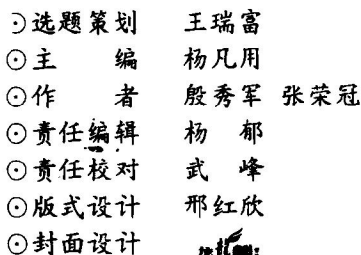 ⊙选题策划 王瑞富
⊙主 编 杨凡用
⊙作 者 殷秀军 张荣冠
⊙责任编辑 杨 郁
⊙责任校对 武 峰
⊙版式设计 邢红欣
⊙封面设计